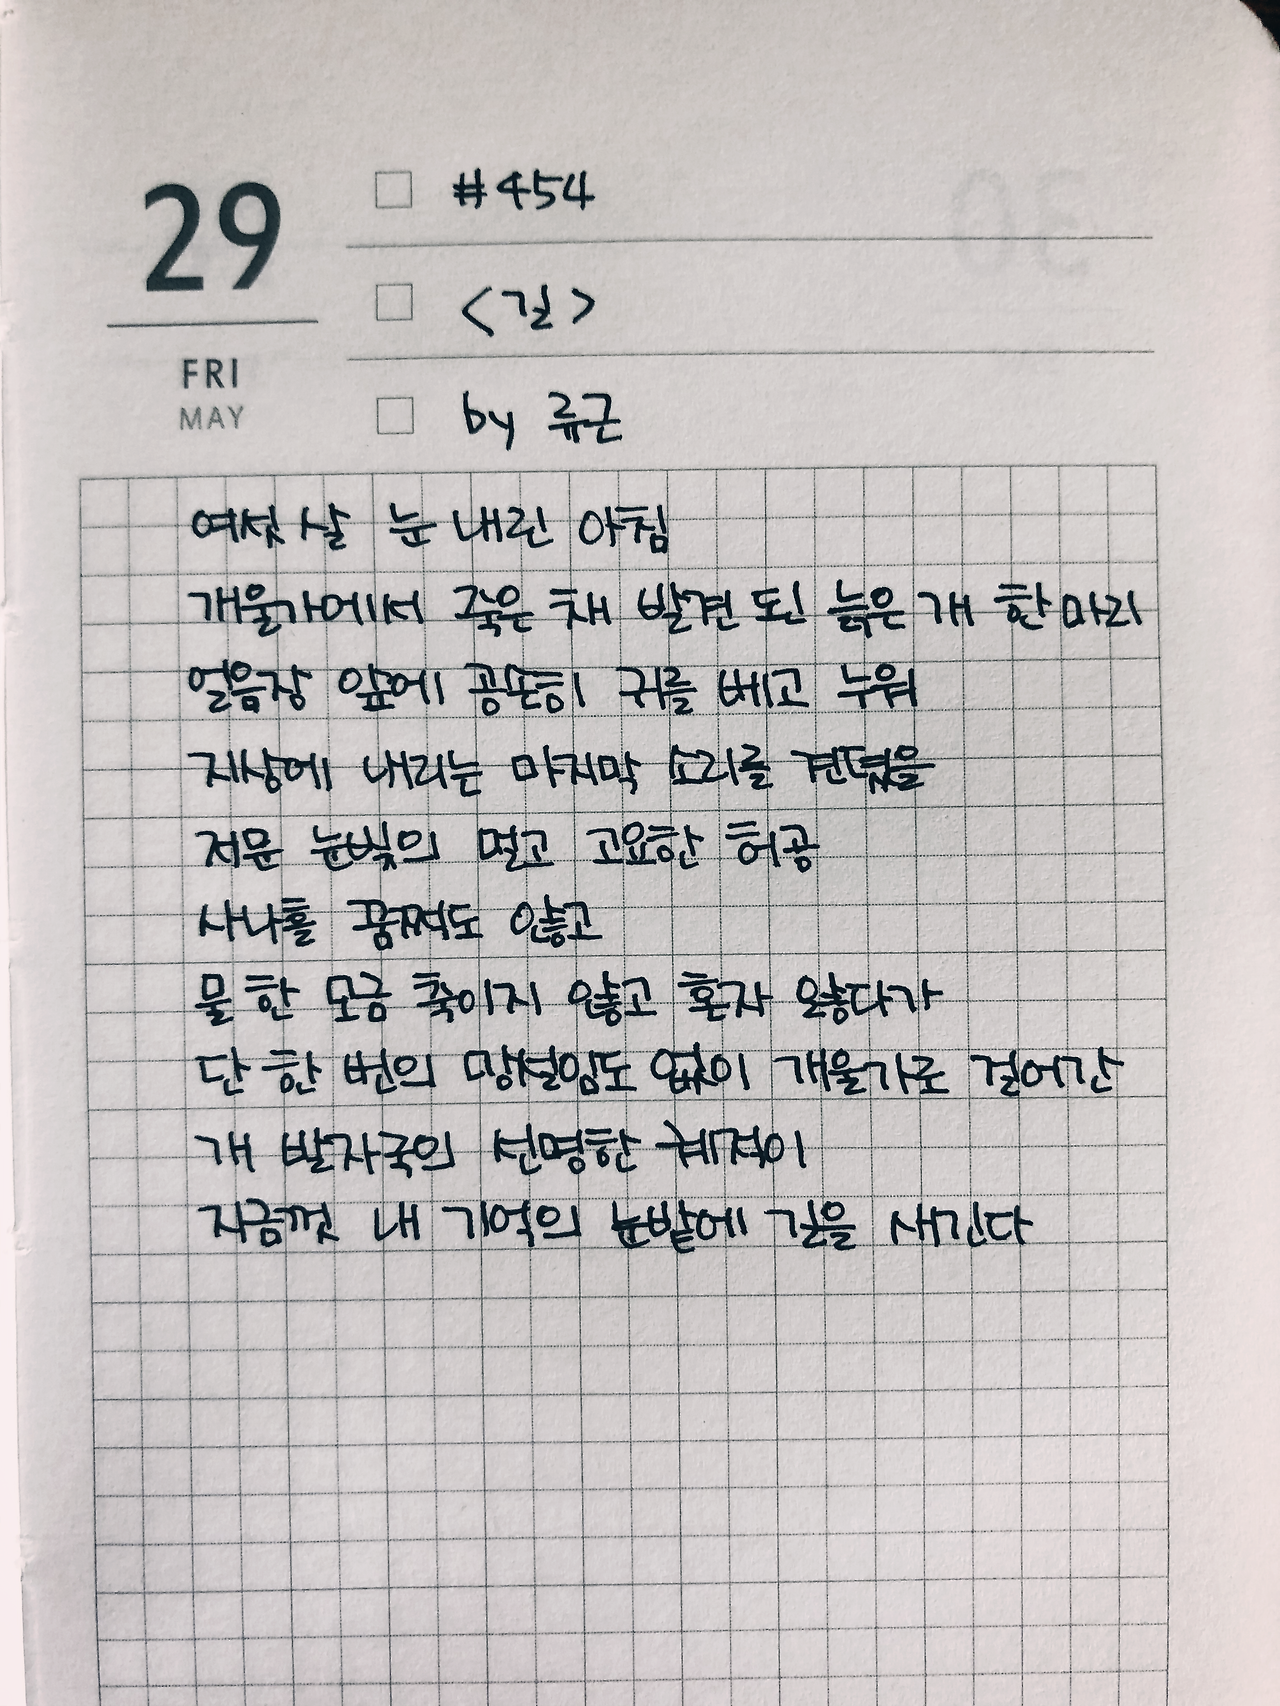 29
FRI
MAY
#454
<길>
by 류근
여섯 살 눈 내린 아침
개울가에서 죽은 채 발견 된 늙은 개 한 마리
얼음장 앞에 공손히 귀를 베고 누워
지상에 내리는 마지막 소리를 견뎠을
저문 눈빛의 멀고 고요한 허공
사나흘 꿈쩍도 않고
물 한 모금 축이지 않고 혼자 앓다가
단 한 번의 망설임도 없이 개울가로 걸어간
개 발자국의 선명한 궤적이
지금껏 내 기억의 눈밭에 길을 새긴다